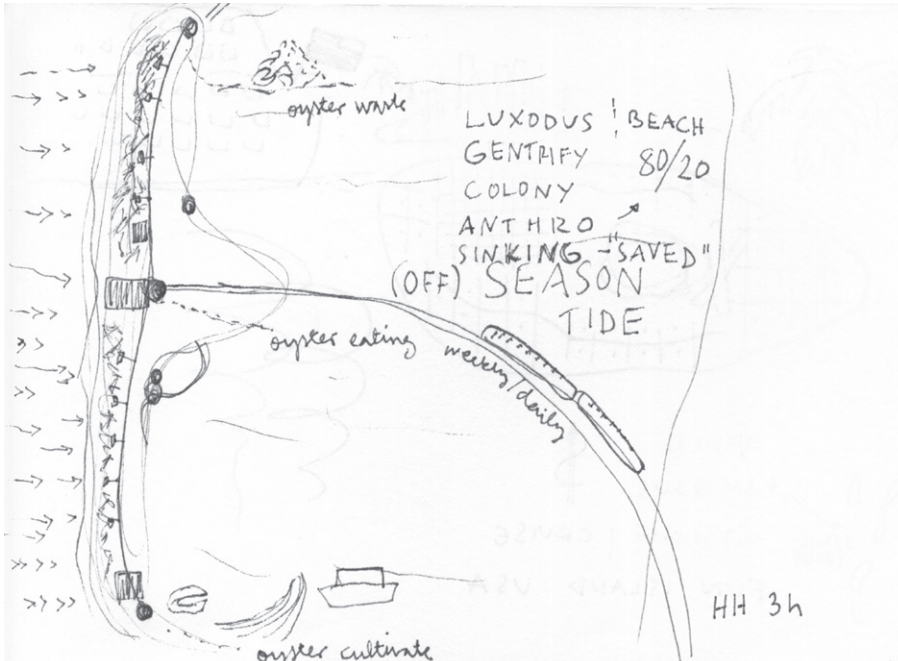 oyster waste
LUXODUS ¦ BEACH
GENTRIFY 80/20
COLONY
ANTHRO
SINKING - "SAVED"
(OFF) SEASON
TIDE
oyster eating
weekly/daily
HH 3h
oyster cultivate